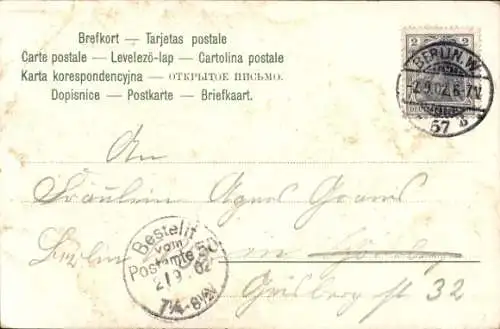 Brefkort — Tarjetas postale
Carte postale — Levelező-lap — Cartolina postale
Karta korespondencyjna — ОТКРЫТОЕ ПИСЬМО.
Dopisnice — Postkarte — Briefkaart.
2
BERLIN W.
2.9.02.6-7V.
57 b
An
Fräulein Agnes
Berlin
32
Bestellt
vom
Postamte
2/9.02
7¼-8½V